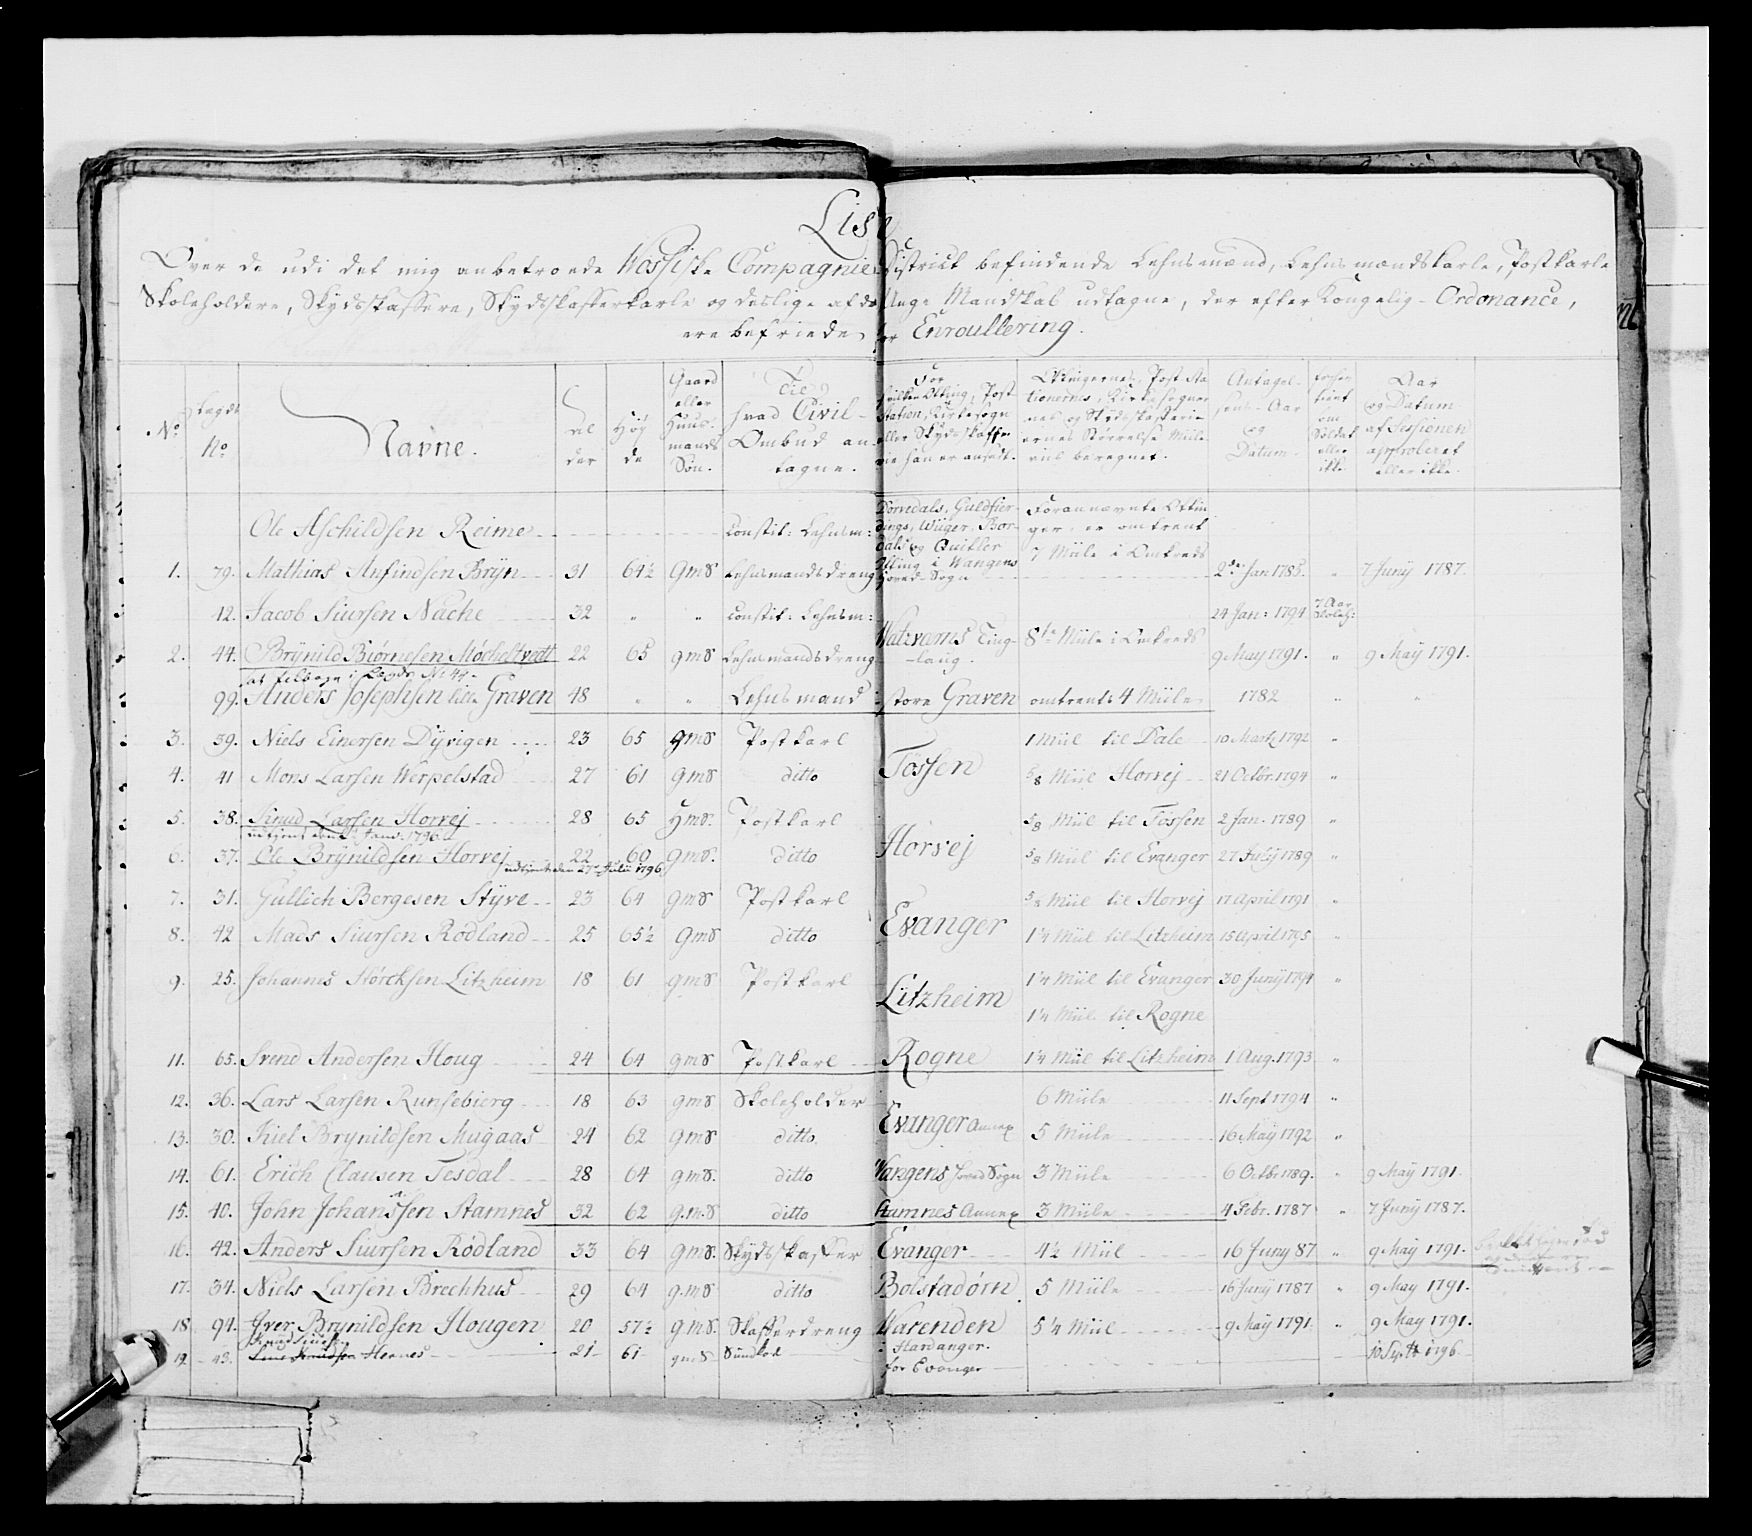 Liste
Over de udi det mig anbetroede Wossiske Compagnie District befindende Lehnsmænd, Lehnsmændskarle, Postkarle
Skoleholdere, Skydsskaffere, Skydsskafferkarle og deslige af det Unge Mandskab udtagne, der efter Kongelig Ordonance,
ere befriede for Enroullering.
No Lægds No Navne. Alder Høyde Gaard eller Huusmands Søn. Til hvad Civil Ombud antagne. For hvilken Otting, Post Station, Kirkesogn eller Skydsskafferie han er ansadt. Ottingernes, Post Stationernes, Kirkesognernes og Skydsskafferiernes Størrelse Miileviis beregnet. Antagelsens Aar og Datum Aar og Datum af Sessionen approberet eller ikke.
Ole Aschildsen Reime constit: Lehnsm: Dørvedals, Guldfierdings, Wiiger, Bordals og Quitler Otting i Wangens Hoved Sogn Forannævnte Ottinger, er omtrent 7 Miile i Omkreds
1. 79. Mathias Anfindsen Bryn 31 64½ GmS Lehnsmandsdreng 2den Jan 1785. " 7 Juny 1787.
12. Jacob Siursen Nache 32 " " constit: Lehnsm: Tinglaug. 8te Miile i Omkreds 24 Jan: 1794 7 Aar
2. 44. Brynild Biørnesen Møcheltvedt 22 65 gmS Lehnsmandsdreng 9 May 1791. " 9 May 1791.
99. Anders Josephsen lille Graven 48 " " Lehnsmand store Graven omtrent 4 Miile 1782 " "
3. 39. Niels Einersen Dyvigen 23 65 gmS Postkarl Fossen 1 Miil til Dale 10 Marts 1792 "
4. 41 Mons Larsen Werpelstad 27 61 gmS ditto ⅝ Miil Horvej 21 Octbr. 1794 "
5. 38. Knud Larsen Horvej 28 65 HmS. Postkarl Horvej ⅝ Miil til Fossen 2 Jan. 1789 "
6. 37. Ole Brynildsen Horvej 22 60 gmS. ditto ⅝ Miil til Evanger 27 July 1789 "
udtient den 27de Julii 1796
7. 31. Gullich Bergesen Styve 23 64 gmS Postkarl Evanger ⅝ Miil til Horvej 17 April 1791 "
8. 42 Mads Siursen Rødland 25 65½ GmS ditto 1¼ Miil til Litzheim 15 April 1795 "
9. 25. Johannes Størcksen Litzheim 18 61 gmS Postkarl Litzheim 1¼ Miil til Evanger 30 Juny 1794 "
1¼ Miil til Rogne
11. 65. Svend Andersen Houg 24 64 gmS Postkarl Rogne 1¼ Miil til Litzheim 1 Aug. 1793 "
12. 36. Lars Larsen Runsebierg 18 63 gmS Skoleholder Evanger Annex 6 Miile 11 Sept 1794 "
13. 30. Kiel Brynildsen Mugaas 24 62 gmS ditto 5 Miile 16 May 1792 "
14. 61. Erich Clausen Tesdal 28 64 gmS. ditto Wangens Hoved Sogn 3 Miile 6 Octbr 1789. " 9 May 1791.
15. 40. John Johansen Stamnes 32 62 g.m.S ditto Annex 3 Miile 4 Febr. 1787 " 7 Juny 1787.
16. 42. Anders Siursen Rødland 33 64 gmS. Skydsskaffer Evanger 4½ Miil 16 Juny 87 " 9 May 1791.
17. 34. Niels Larsen Brechhus 29 64 g.mS ditto Bolstadørn 5 Miile 16 Juny 1787 " 9 May 1791.
18 91. Iver Brynildsen Hougen 20 57½ gmS. Skafferdreng Warenden 5¼ Miil 9 May 1791. " 9 May 1791.
19 43. Hernes 21 61 gmS i Hardanger.
for Evanger 10 Sept 1796